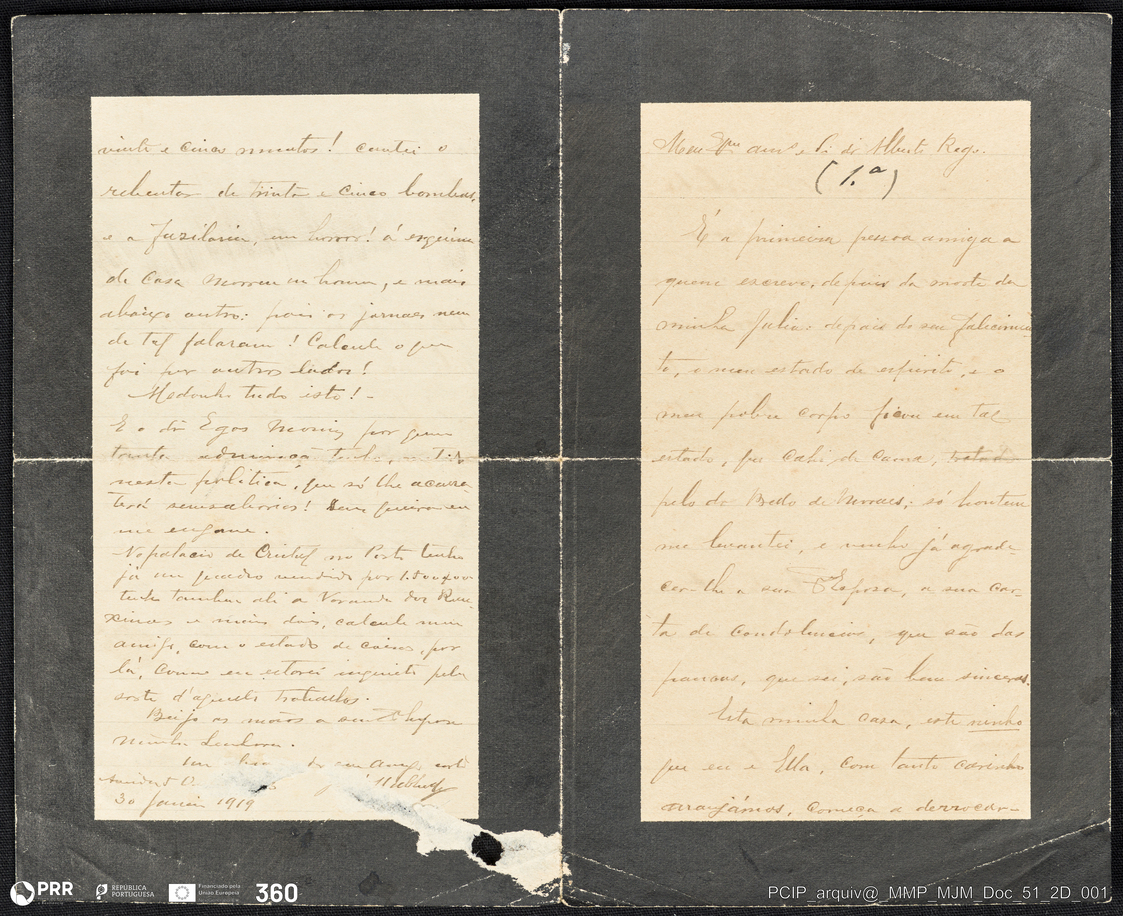 vinte e cinco minutos! contei o
rebentar de trinta e cinco bombas,
e a fuzilaria, um horror! á esquina
de casa morreu um homem, e mais
abaixo outro: pois os jornaes nem
de tal falaram! Calcule o que
foi por outros lados!
Medonho tudo isto! -
E o dr Egas Moniz por quem
tanta admiração tenho,
nesta politica, que só lhe acarre-
tará semsaborias! Deus queira
me engane.
No palacio de Cristal no Porto tenho
já um quadro vendido por
tenho tambem ali a Varanda dos Rou-
xinoes e mais dois, calcule meu
amigo, com o estado de coisas, por
lá, como eu estarei inquieto pela
sorte d'aqueles trabalhos.
Beijo as mãos a sua Esposa
minha Senhora.
30 Janeiro 1919
Meu Exmo amo e Sr. dr Alberto Rego.
(1.a)
É a primeira pessoa amiga a
quem escrevo, depois da morte da
minha Julia: depois do seu falecimen
to, o meu estado de espirito, e o
meu pobre corpo ficou em tal
estado, que cahi de cama, tratado
pelo dr Bello de Moraes; só hontem
me levantei, e venho já agrade-
cer-lhe a sua Esposa, a sua car-
ta de condolencias, que são das
poucas, que sei, são bem sinceras.
Esta minha casa, este ninho
que eu e Ella, com tanto carinho
arranjámos, começa a derrocar-
PRR
REPÚBLICA
PORTUGUESA
Financiado pela
União Europeia
360
PCIP_arquiv@_MMP_MJM_Doc_51_2D_001